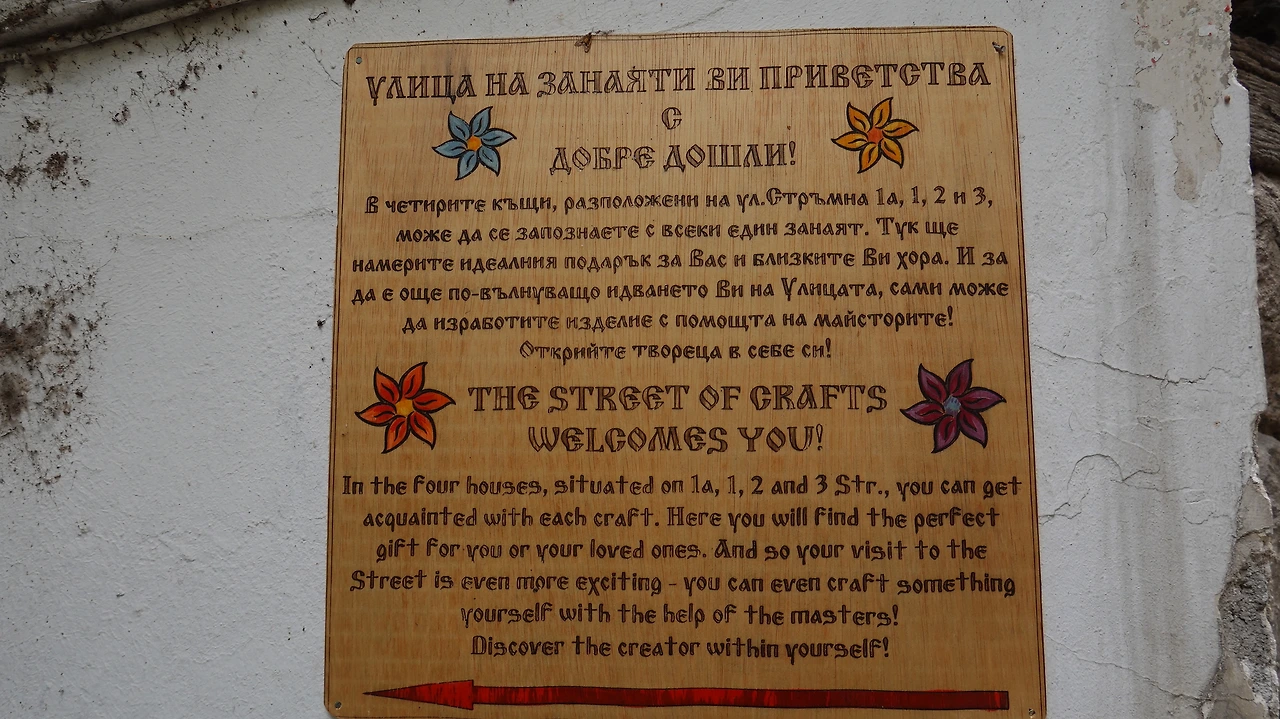 УЛИЦА НА ЗАНАЯТИ ВИ ПРИВЕТСТВА
С
ДОБРЕ ДОШЛИ!
В четирите къщи, разположени на ул.Стръмна 1а, 1, 2 и 3,
може да се запознаете с всеки един занаят. Тук ще
намерите идеалния подарък за Вас и близките Ви хора. И за
да е още по-вълнуващо идването Ви на Улицата, сами може
да изработите изделие с помощта на майсторите!
Открийте твореца в себе си!
THE STREET OF CRAFTS
WELCOMES YOU!
In the four houses, situated on 1a, 1, 2 and 3 Str., you can get
acquainted with each craft. Here you will find the perfect
gift for you or your loved ones. And so your visit to the
Street is even more exciting - you can even craft something
yourself with the help of the masters!
Discover the creator within yourself!